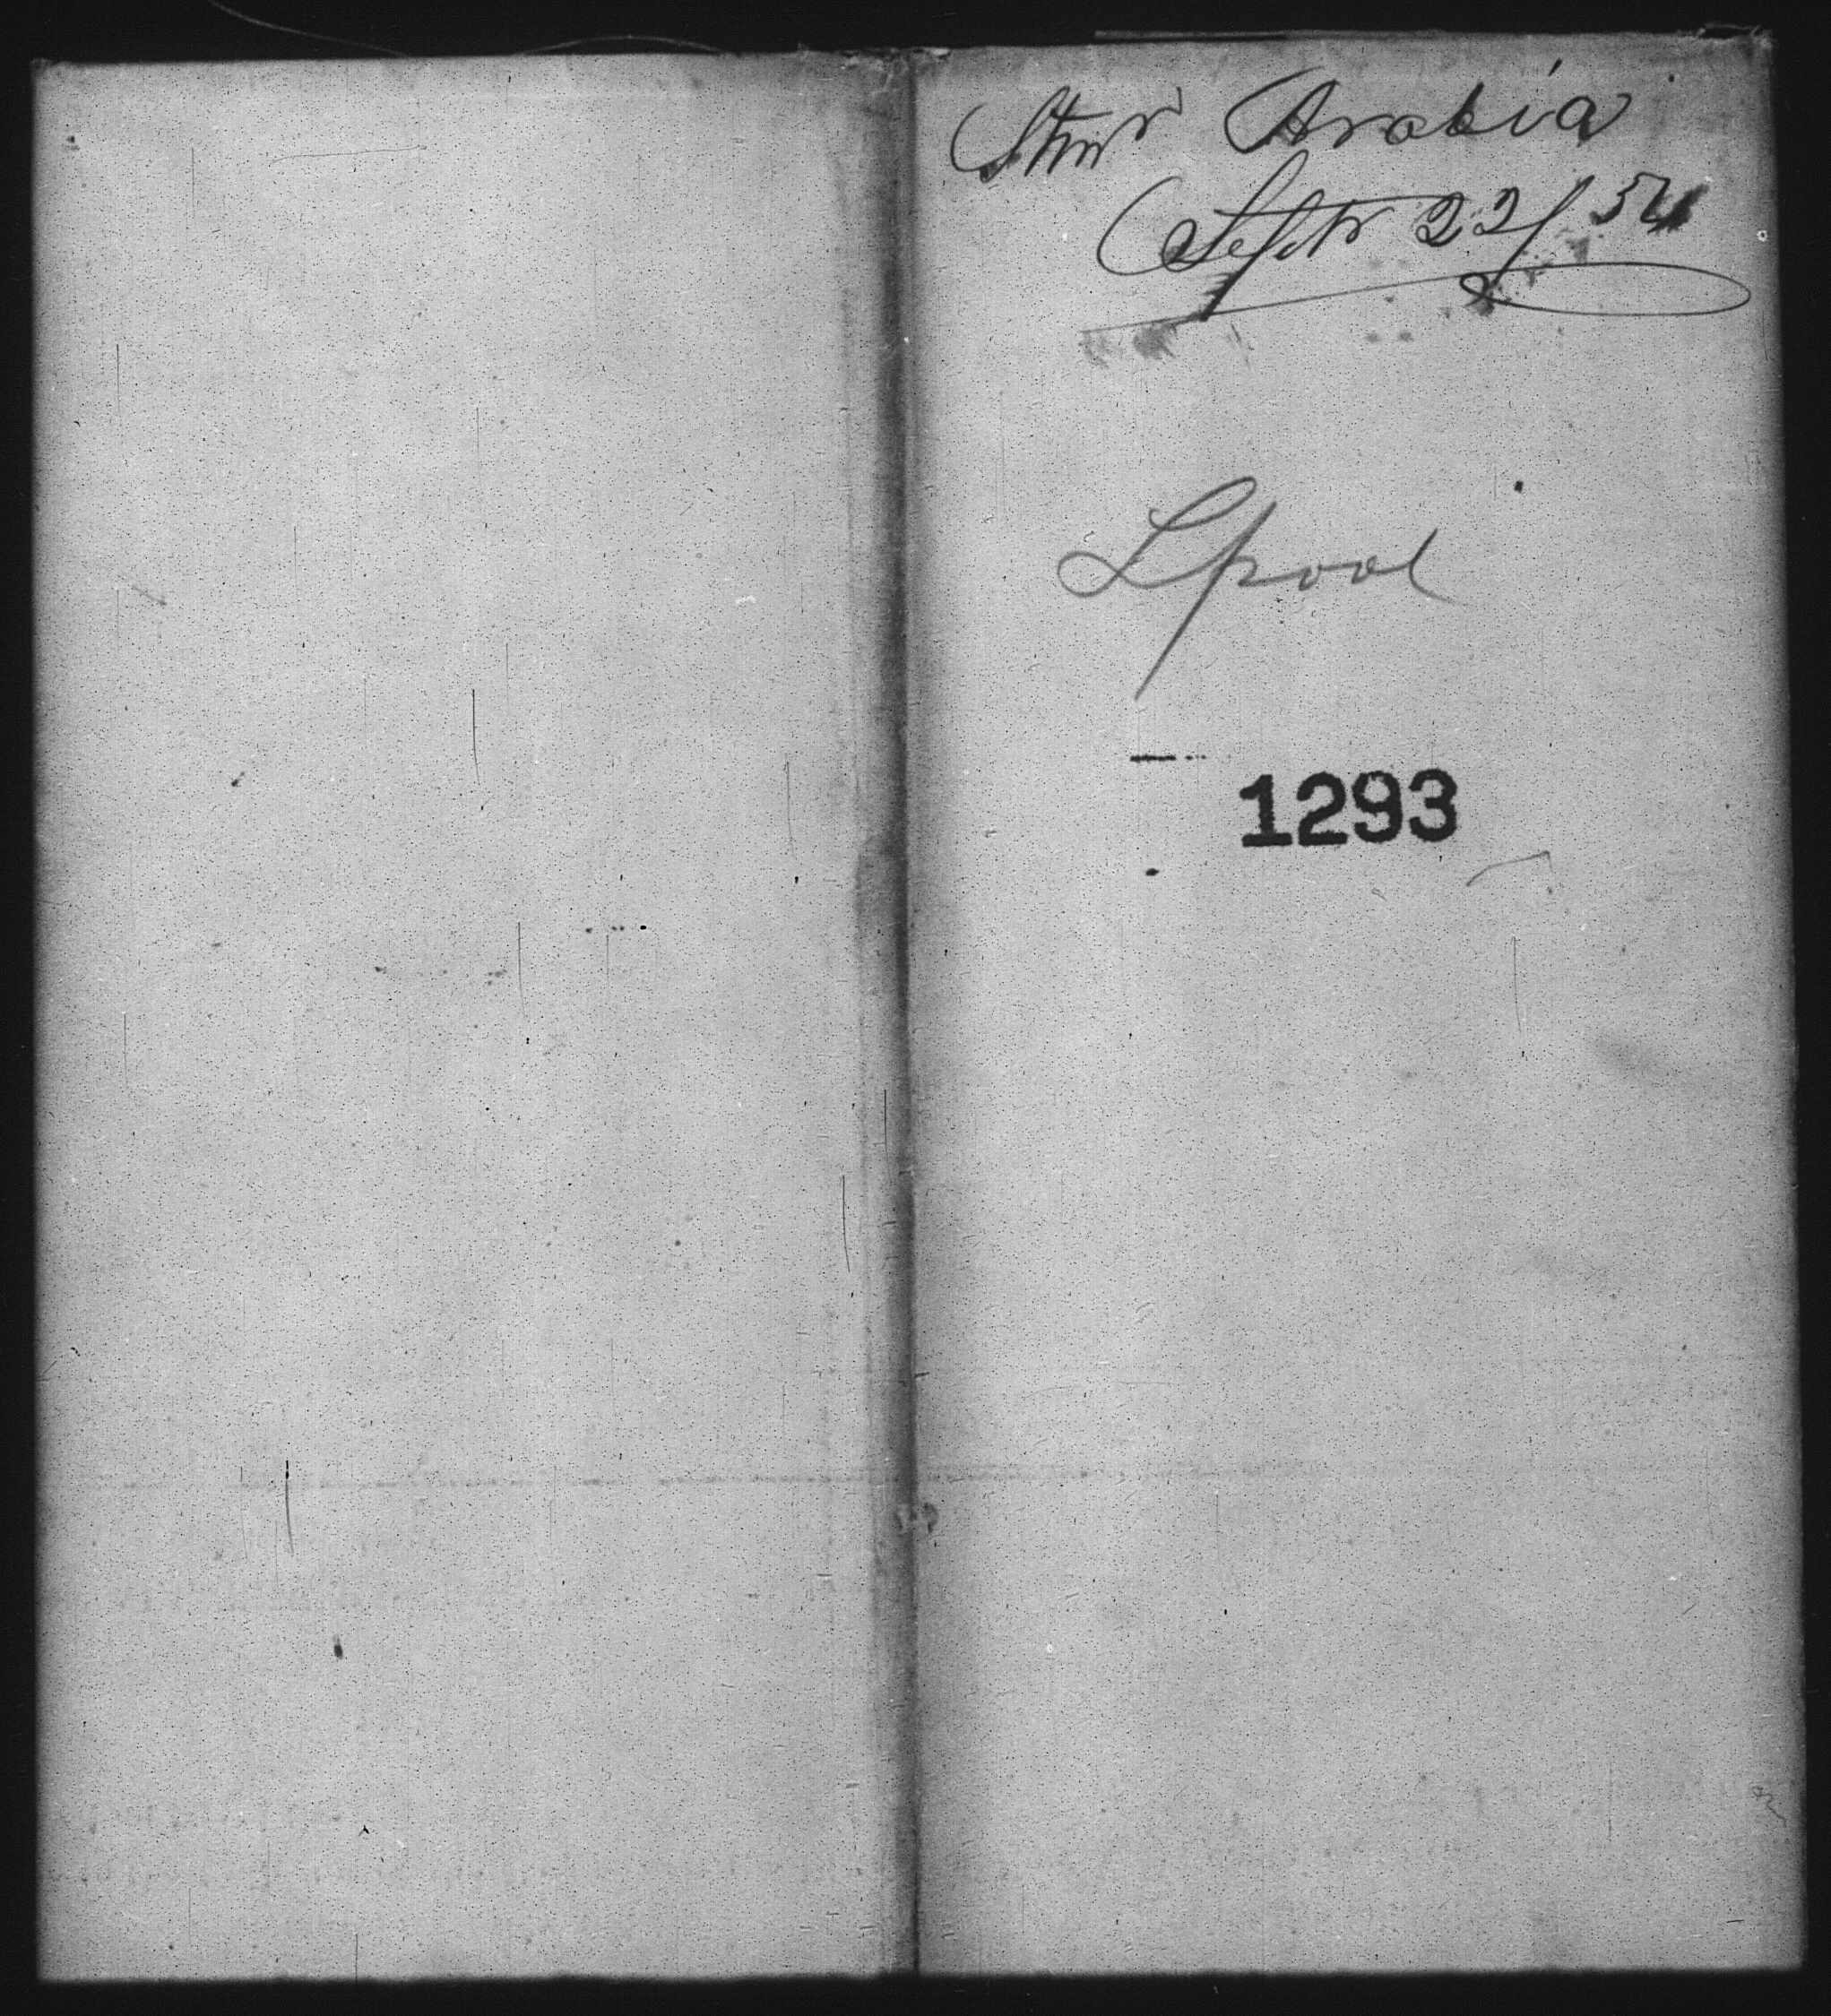 Stmr Arabia
Septr 22/54
Lpool
1293